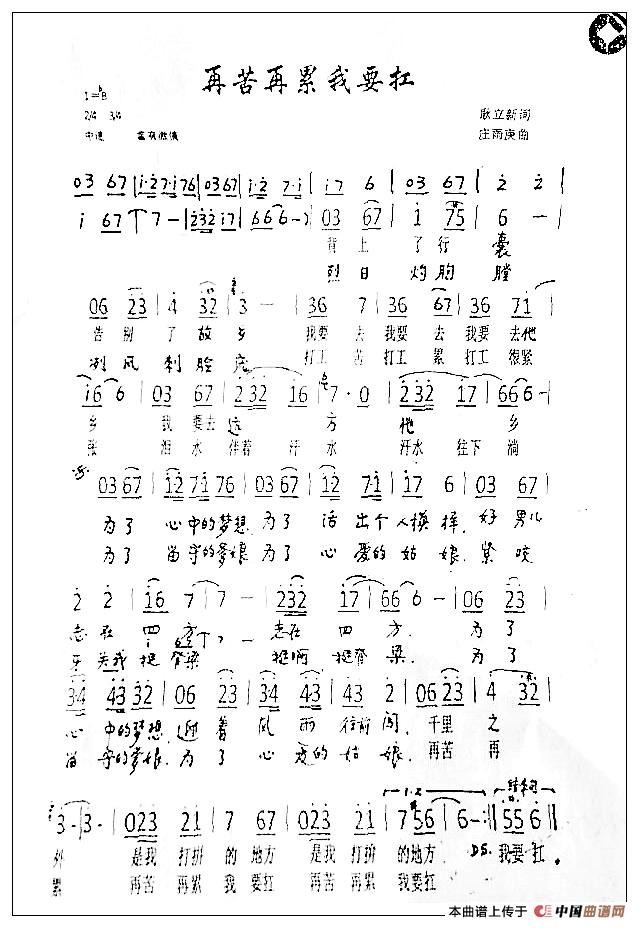 再苦再累我要扛
1=♭B
2/4 3/4
耿立新词
中速
庄雨庚曲
03 67 | 1·2 7·1 76 | 03 67 | 1·2 7·1 | 17 6 | 03 67 | 2 2 |
1 67 7 7 - | 2 32 17 | 66 6 - | 03 67 | 1 75 | 6 - |
背上了行囊
烈日灼胸膛
06 23 | 4 32 | 3 - | 36 7 | 36 67 | 36 71 |
告别了故乡 我要去我要去我要去他
冽风刺脸庞 打工苦打工累打工很紧
16 6 | 03 67 | 2 32 16 | 7·0 | 2 32 17 | 66 6 - |
乡 我要去远方 他乡
张 泪水伴着汗水 汗水往下淌
03 67 | 12 71 76 | 03 67 | 12 71 | 17 6 | 03 67 |
为了心中的梦想,为了活出个人模样,好男儿
为了留守的爹娘为了心爱的姑娘,紧咬
2 2 | 16 7 | 7 - | 2 32 | 17 | 66 6 - | 06 23 |
志在四方 志在四方.为了
牙关我挺脊梁 挺脊梁.为了
34 43 32 | 06 23 | 34 43 | 32 2 | 06 23 | 4 32 |
心中的梦想,迎着风雨往前闯,千里之
留守的爹娘.为了心爱的姑娘.再苦再
3· 3· | 023 21 | 7 67 | 023 21 | 7 56 | 6 - :‖ 55 6 ‖
外 是我打拼的地方 是我打拼的地方. D.S. 我要扛。
累 再苦再累我要扛 再苦再累我要扛
本曲谱上传于 中国曲谱网